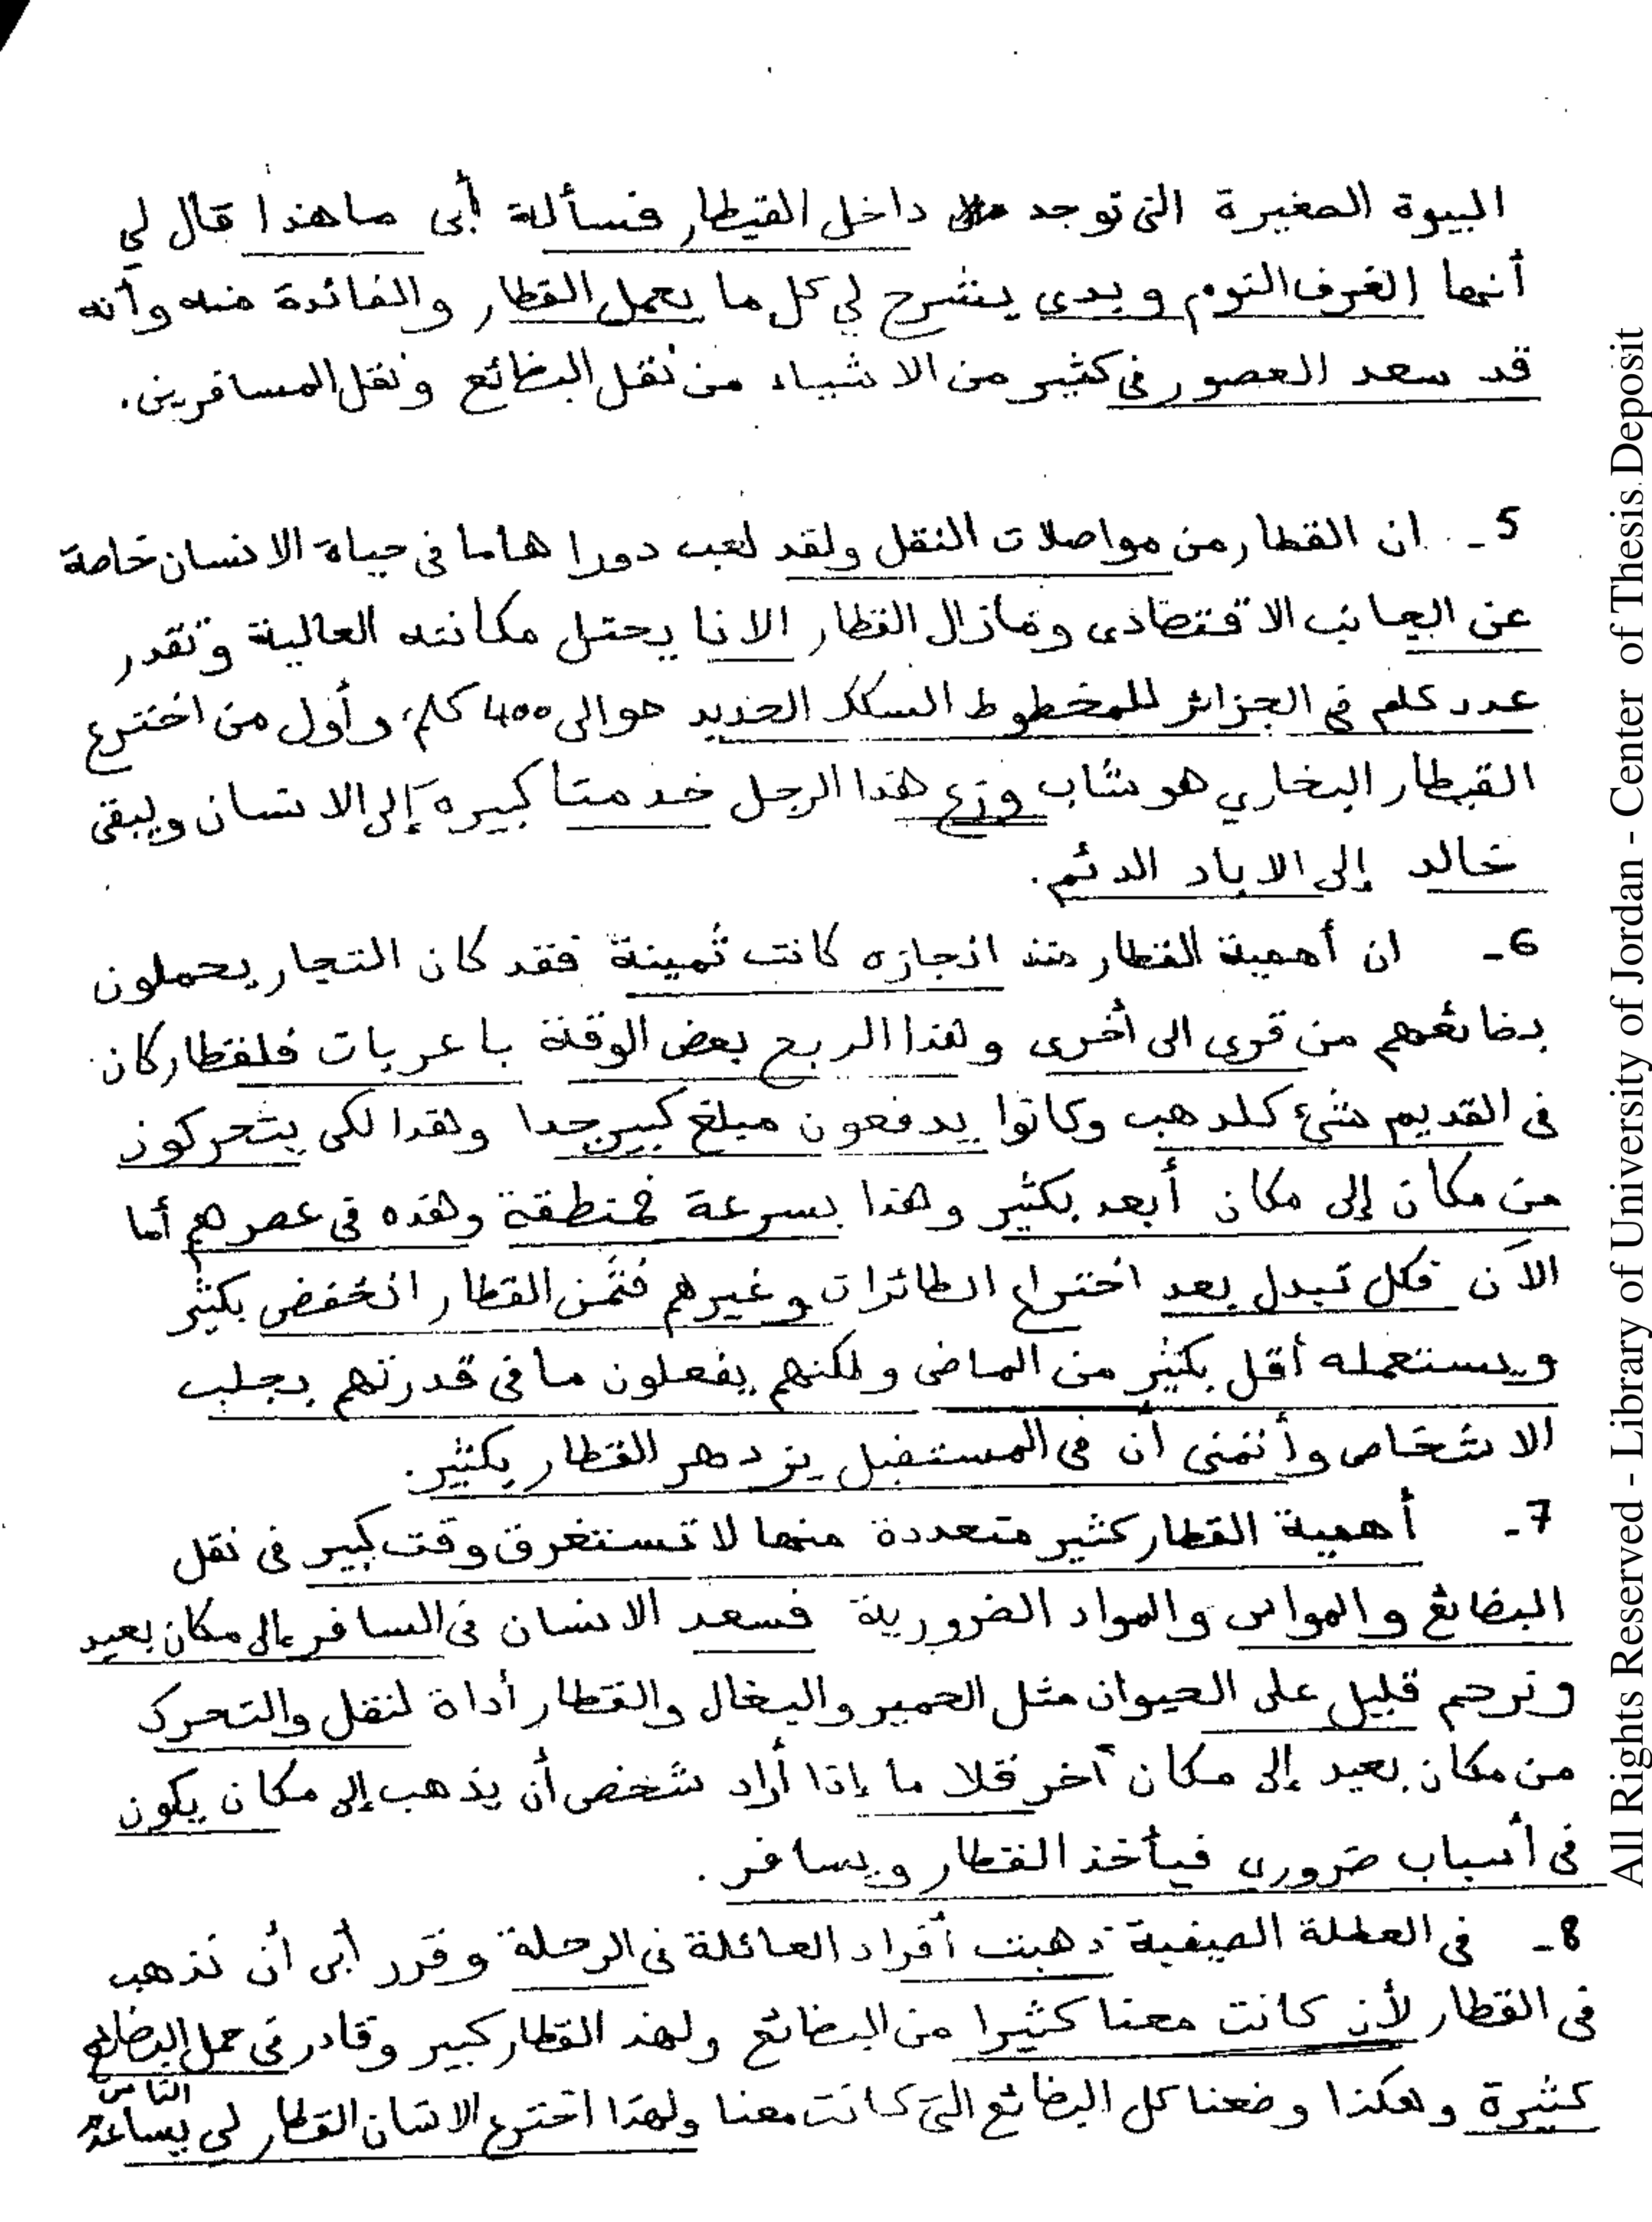 البيوة الصغيرة التى توجد داخل القيطار فسألة أبى ما هندا قال لي
أنها الغرف النوم و بدى يشرح لي كل ما يعمل القطار والفائدة منه وأنه
قد سعد العصور فى كثير من الاشياء من نقل البضائع ونقل المسافرين.
5 - ان القطار من مواصلات النقل ولقد لعب دورا هاما فى حياة الانسان خاصة
عن الجانب الاقتصادى ومازال القطار الانا يحتل مكانته العالية وتقدر
عدد كلم فى الجزائر للمخطوط السكك الحديد حوالى 400 كلم، وأول من اخترع
القيطار البخاري هو شاب وزع هذا الرجل خدمتا كبيره إلى الانسان ويبقى
خالد إلى الاباد الدئم.
6 - ان أهمية القطار منذ انجازه كانت ثمينة فقد كان التجار يحملون
بضائعهم من قرى الى أخرى وهذا الربح بعض الوقتة باعربات فلقطار كان
فى القديم شئ كلدهب وكانوا يدفعون مبلغ كبير جدا وهدا لكى يتحركون
من مكان إلى مكان أبعد بكثير وهذا بسرعة وهذه فى عصرهم أما
الآن فكل تبدل بعد اختراع الطائرات وغيرهم فثمن القطار انخفض بكثير
ويستعمله أقل بكثير من الماضى ولكنهم يفعلون ما فى قدرتهم بجلب
الاشخاص وأتمنى أن فى المستقبل يزدهر القطار بكثير.
7 - أهمية القطار كثير متعددة منها لا تستغرق وقت كبير فى نقل
البضائع والمواس والمواد الضرورية فسعد الانسان فى السافر الى مكان بعيد
ونرحم قليل على الحيوان مثل الحمير والبغال والقطار أداة لنقل والتحرك
من مكان بعيد إلى مكان آخر قلا ما إذا أراد شخص أن يذهب إلى مكان يكون
فى أسباب ضرورى فيأخذ القطار ويسافر.
8 - فى العطلة الصيفية ذهبت أفراد العائلة فى الرحلة وقرر أبى أن نذهب
فى القطار لأن كانت معنا كثيرا من البضائع ولهذ القطار كبير وقادر فى حمل البضائع
كثيرة وهكذا وضعنا كل البضائع التى كانت معنا ولهذا اخترع الانسان القطار لى يساعد الناس
All Rights Reserved - Library of University of Jordan - Center of Thesis Deposit